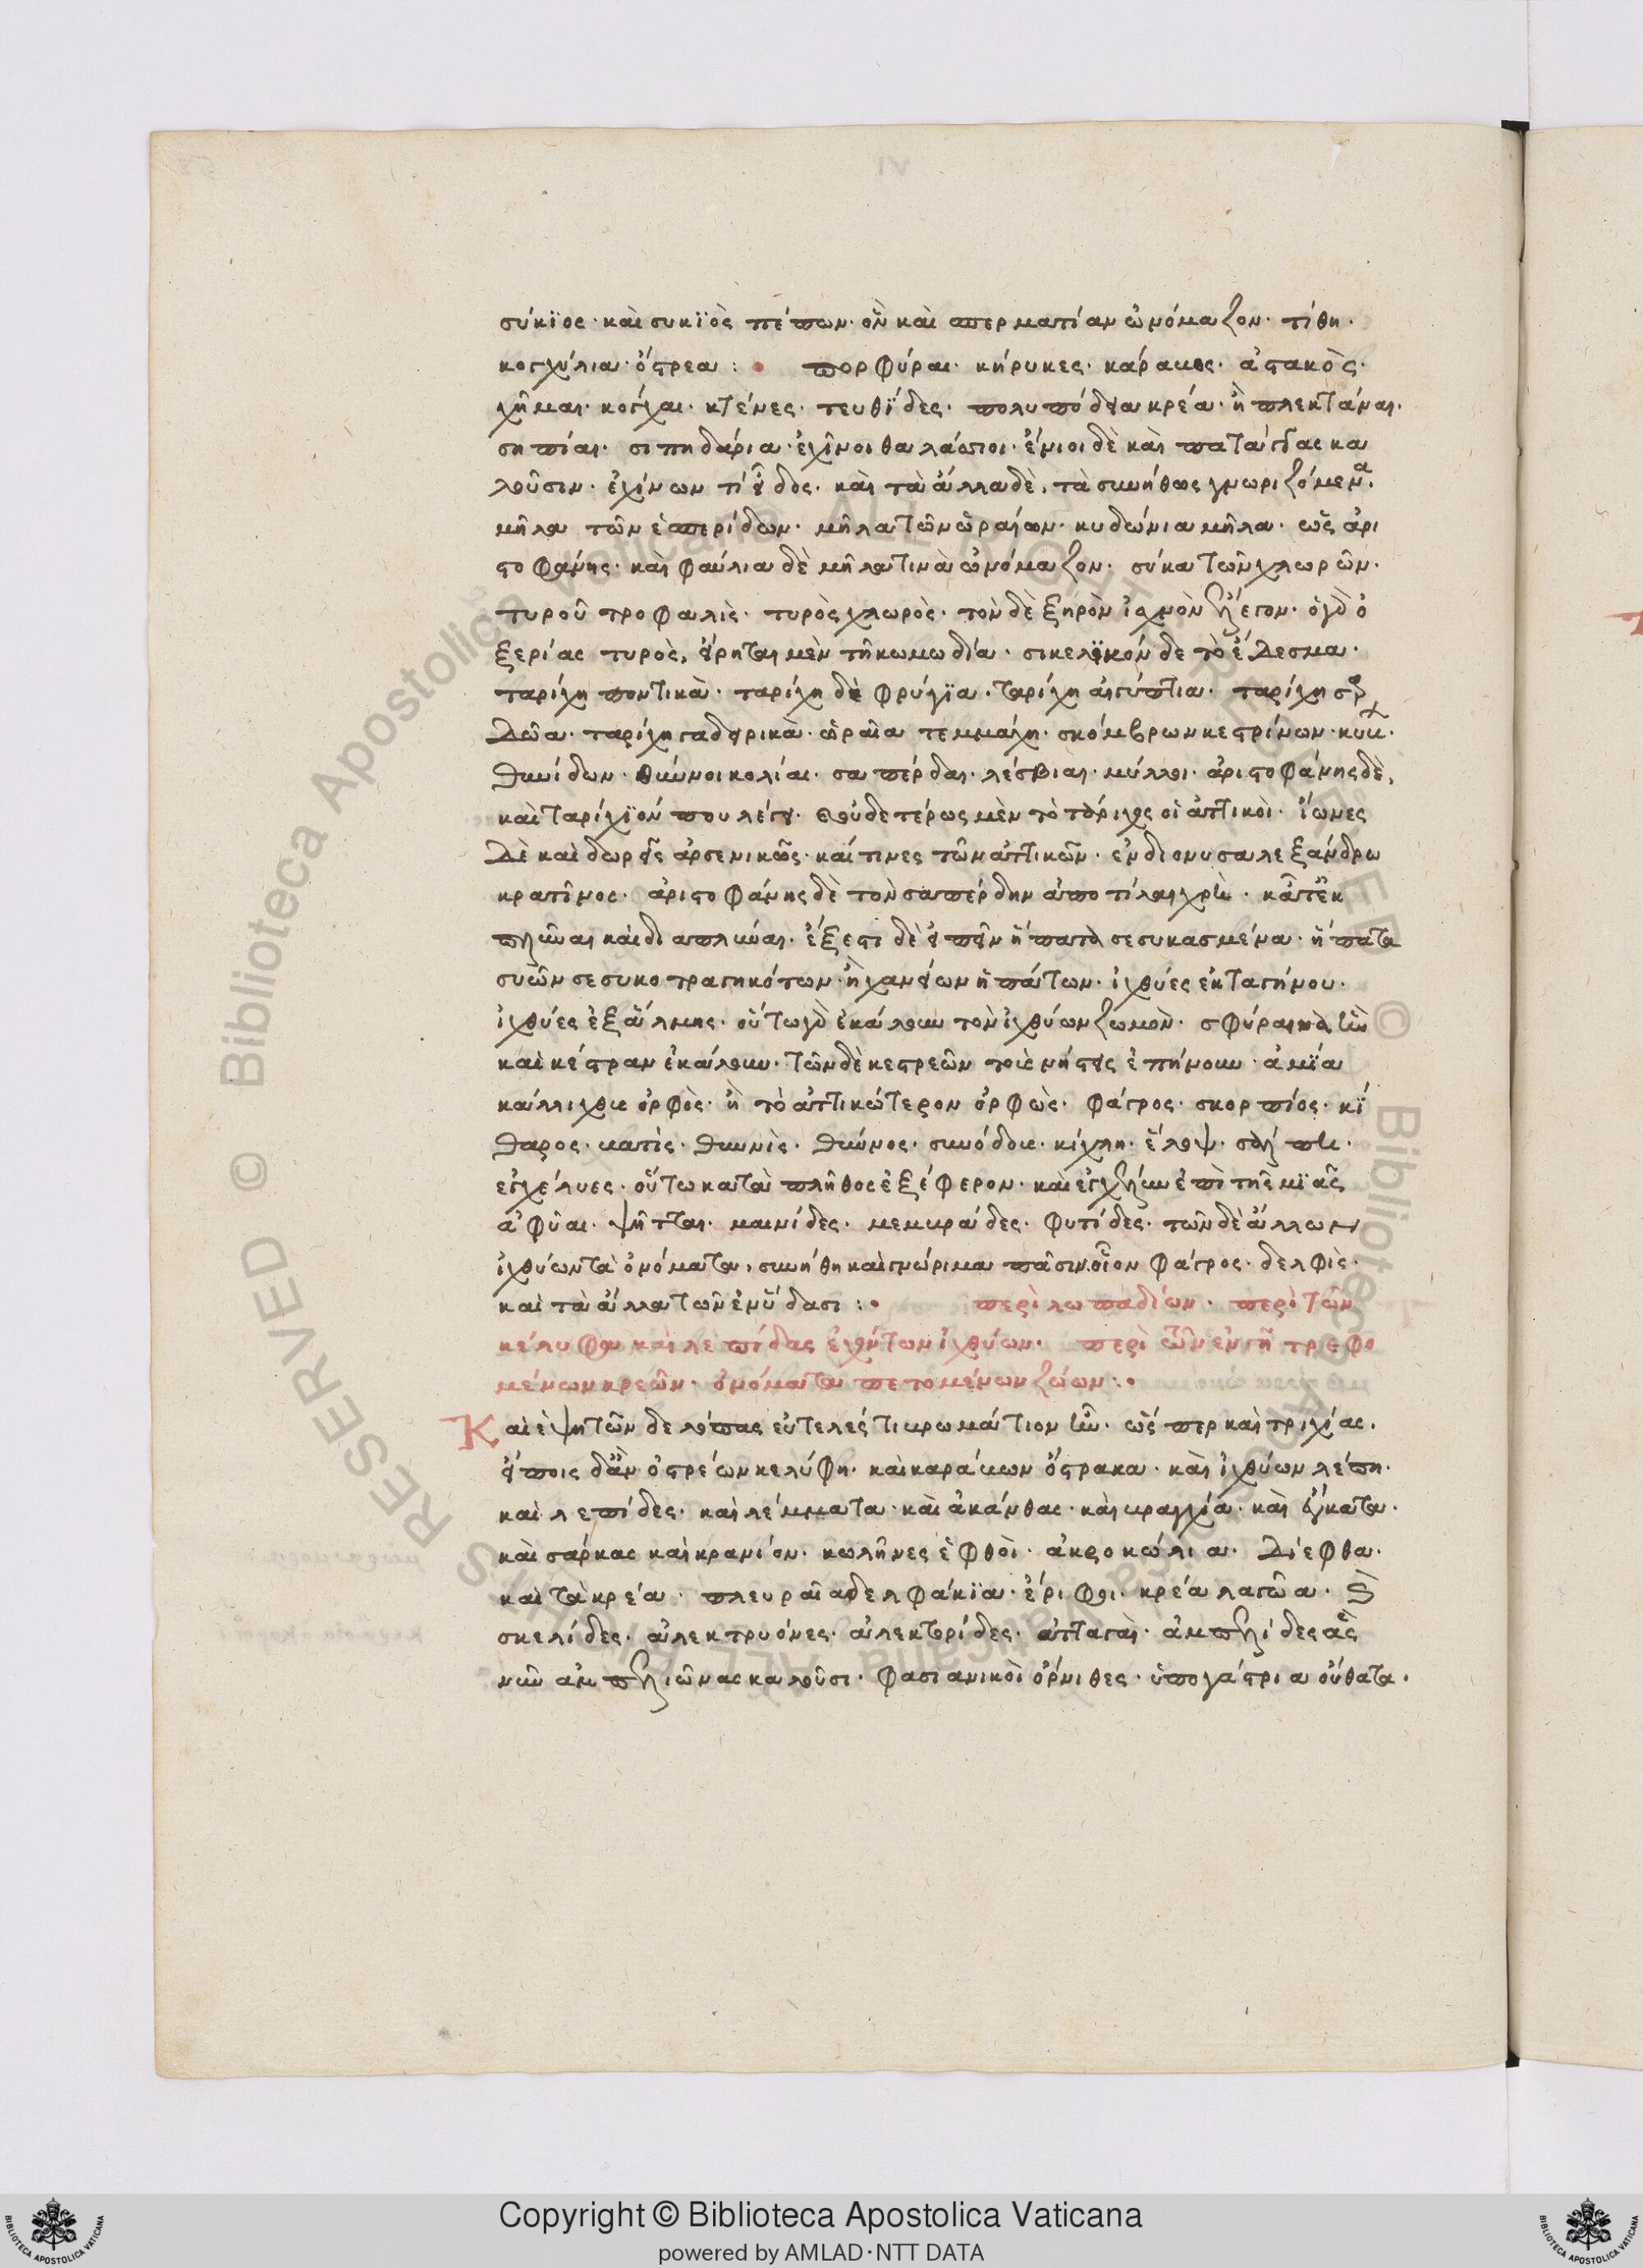 σύκϊος · καὶ συκϊὸς πέπων · ὃν καὶ σπερματίαν ὠνόμαζον · τίθη ·
κογχύλια · ὄστρεα : πορφύραι · κήρυκες · κάραβος · ἀστακὸς ·
χῆμαι · κόγχαι · κτένες · τευθΐδες · πολυπόδεια κρέα · ἢ πλεκτάναι ·
σηπίαι · σιπηδάρια · ἐχῖνοι θαλάσσιοι · ἔνιοι δὲ καὶ πατάγγας κα
λοῦσιν · ἐχίνων τί εἶδος · καὶ τὰ ἄλλα δὲ, τὰ συνήθως γνωριζόμενα ·
μῆλα τῶν ἑσπερίδων · μῆλα τῶν ὡραίων · κυδώνια μῆλα · ὡς ἀρι
στοφάνης · καὶ φαύλια δὲ μῆλα τινὰ ὠνόμαζον · σύκα τῶν χλωρῶν ·
τυροῦ τροφαλὶς · τυρὸς χλωρὸς · τὸν δὲ ξηρὸν ἰσχνὸν ἔλεγον · ὁ γὰρ ὀ
ξερίας τυρὸς, εἴρηται μὲν τῆ κωμωδία · σικελϊκὸν δε τὸ ἔδεσμα ·
ταρίχη ποντικὰ · ταρίχη δὲ φρύγϊα · ταρίχη αἰγύπτια · ταρίχη σαρ
δῶα · ταρίχη γαδειρικὰ · ὡραῖα τεμμάχη · σκόμβρων κεστρίνων · κυβ ·
θυννίδων · θύννοι κολίαι · σαπέρδαι · λέσβιαι · μύλλοι · ἀριστοφάνης δὲ,
καὶ ταρίχϊόν που λέγει · οὐδετέρως μὲν τὸ τάριχος οἱ ἀττικοὶ · ἴωνες
δὲ καὶ δωριεῖς ἀρσενικῶς · καί τινες τῶν ἀττικῶν · ἐν διονυσαλεξάνδρω
κρατῖνος · ἀριστοφάνης δὲ τὸν σαπέρδην ἀποτίλαι χρὴ · κᾆτ᾽ ἐκ
πλῦναι καὶ διαπλύναι · ἔξεστι δὲ εἰπεῖν ἥπατα σεσυκασμένα · ἥπατα
συῶν σεσυκοτραγηκότων · ἢ χανείων ἡπάτων · ἰχθύες ἐκ ταγήνου ·
ἰχθύες ἐξ ἅλμης · οὕτω γὰρ ἐκάλουν τὸν ἰχθύων ζωμὸν · σφύραινα ἣν
καὶ κέστραν ἐκάλουν · τῶν δὲ κεστρεῶν τοὺς νήστεις ἐπήνουν · ἀμϊα
κάλλιχθυς ὀρφὸς · ἢ τὸ ἀττικώτερον ὀρφὼς · φάγρος · σκορπίος · κϊ
θαρος · βατὶς · θυννὶς · θύννος · συνόδους · κίχλη · ἔλοψ · σάλπη ·
ἐγχέλυες · οὕτω κατὰ πλῆθος ἐξέφερον · καὶ ἐγχέλυν ἐπὶ τῆς μϊᾶς
ἀφῦαι · ψῆτται · μαινίδες · μεμβράδες · φυτίδες · τῶν δὲ ἄλλων
ἰχθύων τὰ ὀνόματα, συνήθη καὶ γνώριμα πᾶσιν οἷον φάγρος · δελφὶς ·
καὶ τὰ ἄλλα τῶν ἐν ὕδασι : περὶ λοπαδίων · περὶ τῶν
κέλυφον καὶ λεπίδας ἐχόντων ἰχθύων · περὶ τῶν ἐν γῆ τρεφο
μένων κρεῶν · ὀνόματα πετομένων ζώων :
Καὶ ἑψητῶν δὲ λοπας εὐτελές τι βρωμάτιον ἦν · ὥς περ καὶ τριχίας ·
εἴποις δ᾽ ἂν ὀστρέων κελύφη · καὶ καράβων ὄστρακα · καὶ ἰχθύων λέπη ·
καὶ λεπίδες · καὶ λέμματα · καὶ ἀκάνθας · καὶ βραγχία · καὶ ἔγκατα ·
καὶ σάρκας καὶ κρανίον · κωλῆνες ἑφθοὶ · ἀκροκώλια · δίεφθα ·
καὶ τὰ κρέα · πλευρᾶ δελφάκϊα · ἔριφοι · κρέα λαγῶα ·
σκελίδες · ἀλεκτρυόνες · ἀλεκτορίδες · ἀτταγαὶ · ἀμπελίδες ἃς
νῦν ἀμπελιῶνας καλοῦσι · φασιανικοὶ ὄρνιθες · ὑπογάστρια οὔθατα ·
Copyright © Biblioteca Apostolica Vaticana
powered by AMLAD·NTT DATA